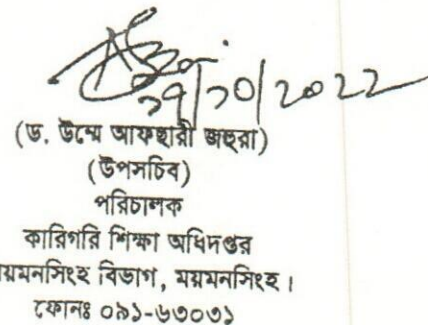 ১৭/১০/২০২২
(ড. উম্মে আফছারী জহুরা)
(উপসচিব)
পরিচালক
কারিগরি শিক্ষা অধিদপ্তর
ময়মনসিংহ বিভাগ, ময়মনসিংহ।
ফোনঃ ০৯১-৬৩০৩১